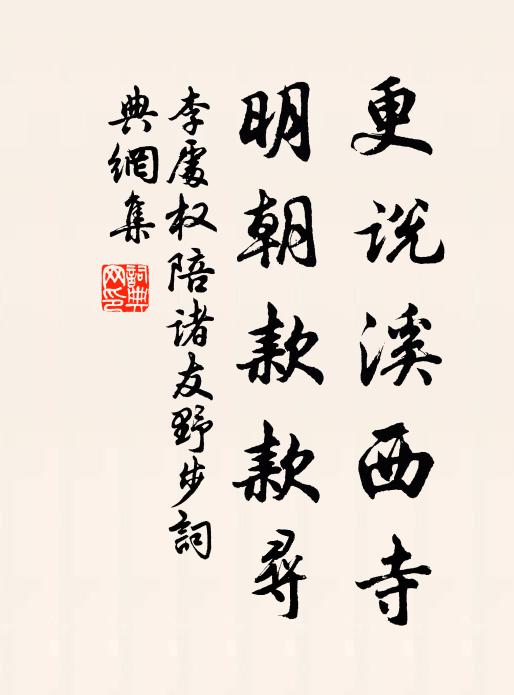 更说溪西寺
明朝款款寻
李處权陪诸友野步詞
典網集
詞典网印